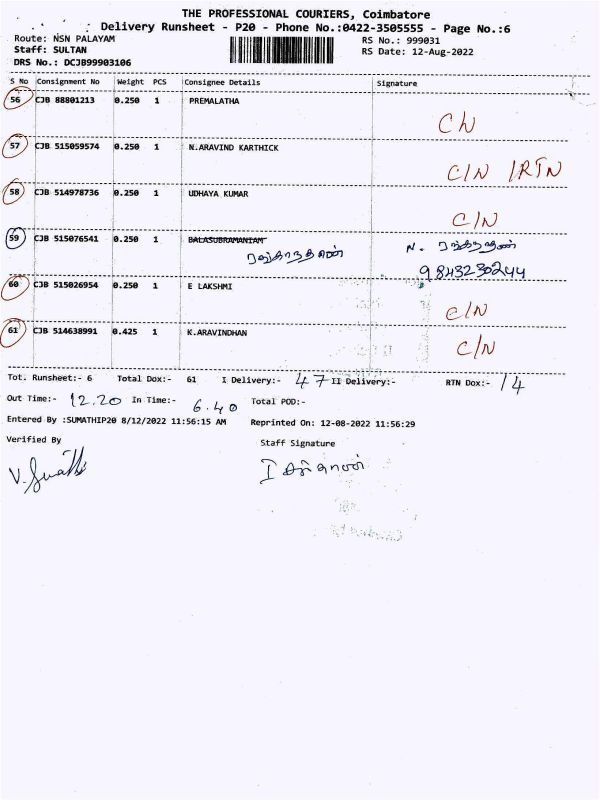 THE PROFESSIONAL COURIERS, Coimbatore
Delivery Runsheet - P20 - Phone No.:0422-3505555 - Page No.:6
Route: NSN PALAYAM RS No.: 999031
Staff: SULTAN RS Date: 12-Aug-2022
DRS No.: DCJB99903106
S No Consignment No Weight PCS Consignee Details Signature
56 CJB 88801213 0.250 1 PREMALATHA
C/N
57 CJB 515059574 0.250 1 N.ARAVIND KARTHICK
C/N /RTN
58 CJB 514978736 0.250 1 UDHAYA KUMAR
C/N
59 CJB 515076541 0.250 1 BALASUBRAMANIAM N.
9843230244
60 CJB 515026954 0.250 1 E LAKSHMI
C/N
61 CJB 514638991 0.425 1 K.ARAVINDHAN
C/N
Tot. Runsheet:- 6 Total Dox:- 61 I Delivery:- 47 II Delivery:- RTN Dox:- 14
Out Time:- 12.20 In Time:- 6.40 Total POD:-
Entered By :SUMATHIP20 8/12/2022 11:56:15 AM Reprinted On: 12-08-2022 11:56:29
Verified By Staff Signature